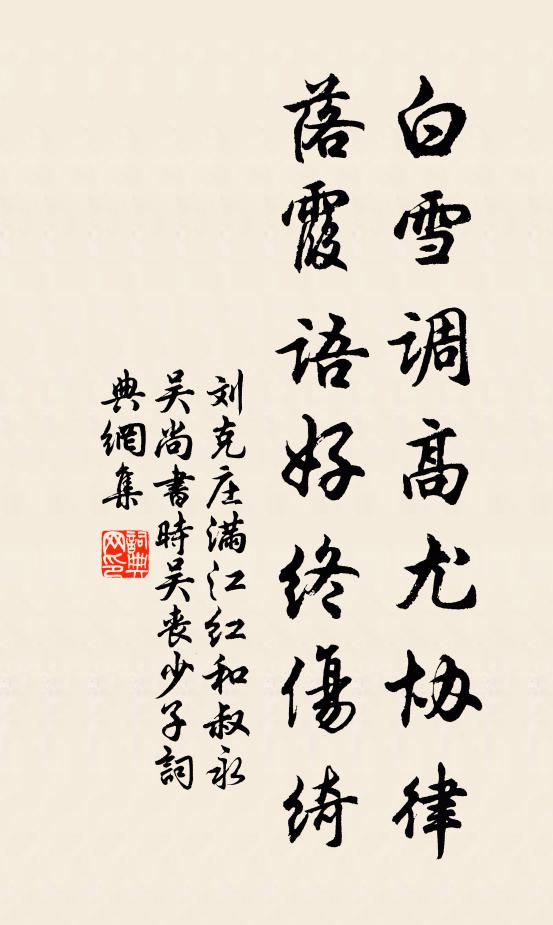 白雪調高尤协律
落霞语好终傷绮
刘克庄满江红和叔永
吴尚書時吴丧少子詞
典網集
詞典
网印